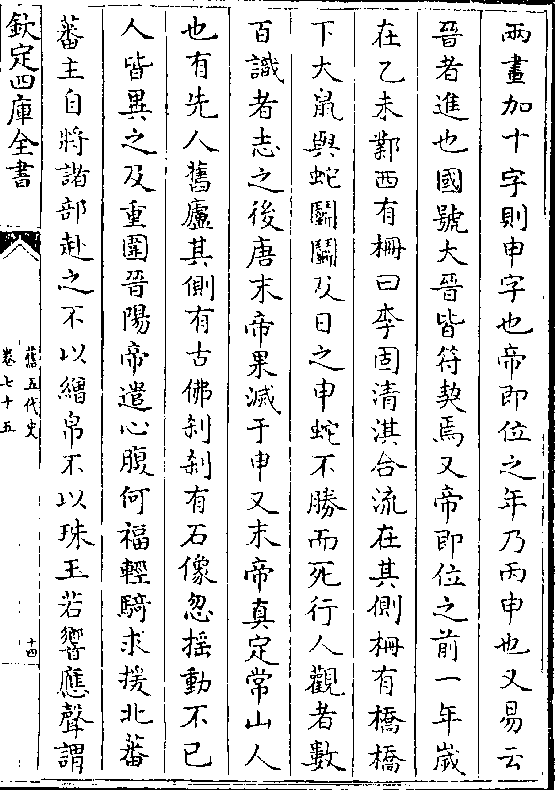 兩畫加十字則申字也帝即位之年乃丙申也又易云
晉者進也國號大晉皆符契焉又帝即位之前一年歲
在乙未鄴西有柵曰李固清淇合流在其側柵有橋橋
下大鼠與蛇鬭鬭及日之申蛇不勝而死行人觀者數
百識者志之後唐末帝果滅于申又末帝真定常山人
也有先人舊廬其側有古佛刹刹有石像忽搖動不已
人皆異之及重圍晉陽帝遣心腹何福輕騎求援北蕃
蕃主自將諸部赴之不以繒帛不以珠玉若響應聲謂
欽定四庫全書
舊五代史
卷七十五
十四